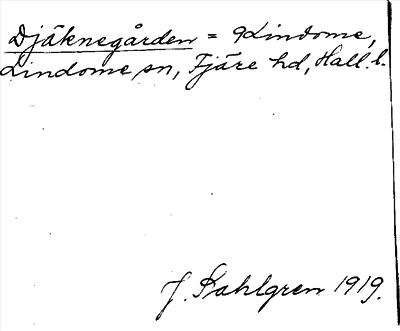 Djäknegården = Lindome,
Lindome sn, Fjäre hd, Hall. l.
J. Sahlgren 1919.